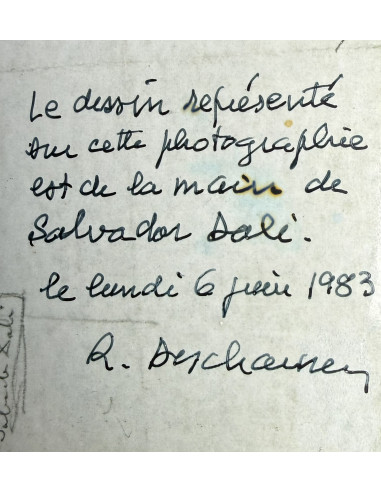 Le dessin représenté
sur cette photographie
est de la main de
Salvador Dali.
le lundi 6 juin 1983
R. Descharnes
Salvador Dali